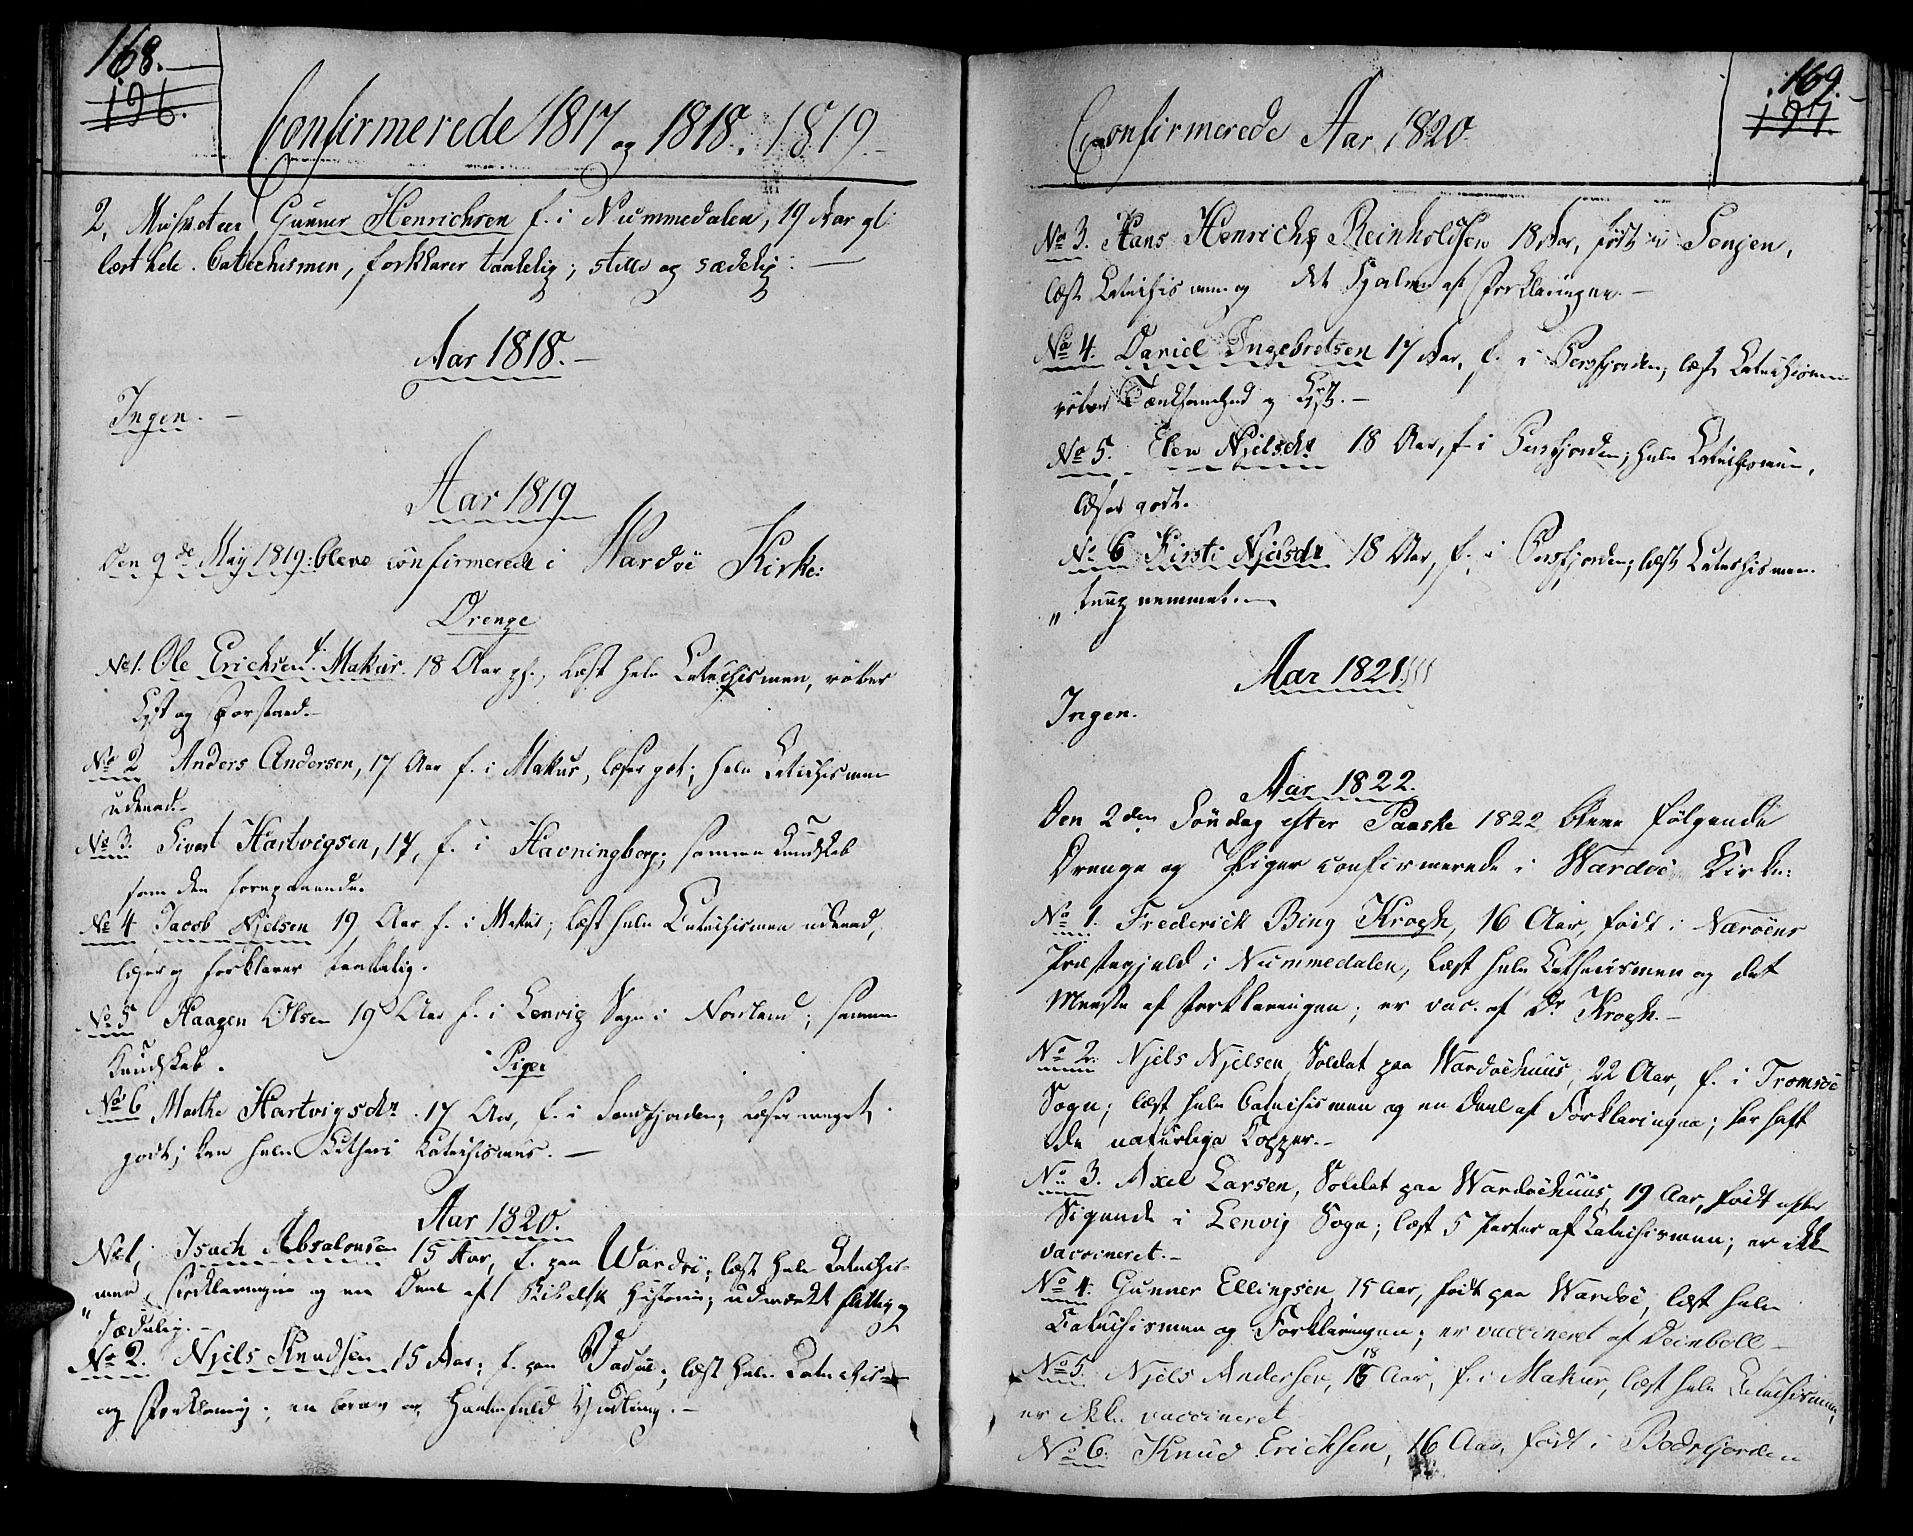 168.
196.
Confirmerede 1817 og 1818. 1819.
2, Gunner Henrichsen f. i Nummedalen, 19 Aar gl:
læst hele Catechismen, forklarer taalelig; stille og sædelig.
Aar 1818.
Ingen.
Aar 1819
Den 9de May 1819: bleve confirmerede i Wardøe Kirke:
Drenge
No 1. Ole Erichsen f. i Makur. 18 Aar gl., læst hele Catechismen, røber
Lyst og Forstand.
No 2 Anders Andersen, 17 Aar f. i Makur, læser got; hele Catechismen
udenad.
No 3. Sivert Hartvigsen, 17, f. i Havningberg; samme Kundskab
som den foregaaende.
No 4 Jacob Njelsen 19 Aar f. i Makur; læst hele Catechismen udenad,
læser og forklarer taalelig.
No 5 Haagen Olsen 19 Aar f. i Lenvig Sogn i Norland; samme
Kundskab.
Piger
No 6 Marthe Hartvigsdr. 17 Aar, f. i Sandfjorden; læser meget
godt; kan hele Lutheri Katechismus.
Aar 1820.
No 1, Isach Absalonsen 15 Aar, f. paa Wardøe; læst hele Catechis-
men, Forklaringen og en Deel af Bibelsk Historie; udmærket flittig og
sædelig.
No 2. Njels Knudsen 15 Aar; f. paa Vadsøe; læst hele Catechis-
og Forklaring; en brav og haabefuld Yndling.
169.
197.
Confirmerede Aar 1820.
No 3. Hans Henrich Reinholdsen 18 Aar, født i Senjen,
læst Catechismen og det Halve af Forklaringen.
No 4. Daniel Ingebretsen 17 Aar, f. i Persfjorden; læst Catechismen
røber Tænksomhed og Lyst.
No 5. Elen Njelsdr 18 Aar, f. i Persfjorden; hele Catechismen,
læser godt.
No 6 Kirsti Njelsdr 18 Aar, f. i Persfjorden; læst Catechismen
tungnemmet.
Aar 1821.
Ingen.
Aar 1822.
Den 2den Søndag efter Paaske 1822 bleve følgende
Drenge og Piger confirmerede i Wardøe Kirke:
No 1. Frederich Bing Krogh, 16 Aar, født i Nærøens
Præstegjeld i Nummedalen, læst hele Cathecismen og det
Meeste af Forklaringen; er vac. af Dr. Krogh.
No 2. Njels Njelsen, Soldat paa Wardøehuus, 22 Aar, f. i Tromsøe
Sogn; læst hele Catechismen og en Deel af Forklaringen; har haft
de naturlige Kopper.
No 3. Axel Larsen, Soldat paa Wardøehuus, 19 Aar, født efter
Sigende i Lenvig Sogn; læst 5 Parter af Catechismen; er ikke
vaccineret.
No 4. Gunner Ellingsen, 15 Aar, født paa Wardøe, læst hele
Catechismen og Forklaringen; er vaccineret af Deinboll
No 5. Njels Andersen, 18 Aar, f. i Makur, læst hele Catechismen,
er ikke vaccineret
No 6. Knud Erichsen, 16 Aar, født i Bodsfjorden